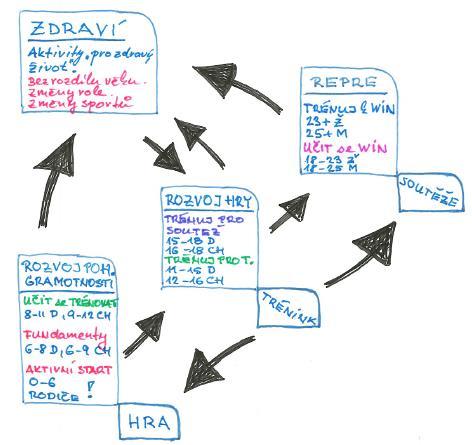 ZDRAVÍ
Aktivity „pro zdravý
život".
Bez rozdílu věku.
Změny role.
Změny sportů
REPRE
TRÉNUJ & WIN
23+ Ž
25+ M
UČIT se WIN
18-23 Ž
18-25 M
SOUTĚŽE
ROZVOJ HRY
TRÉNUJ PRO
SOUTEŽ
15-18 D
16-18 CH
TRÉNUJ PRO T.
11-15 D
12-16 CH
TRÉNINK
ROZVOJ POH.
GRAMOTNOSTI
UČIT se TRÉNOVAT
8-11 D, 9-12 CH
Fundamenty
6-8 D, 6-9 CH
AKTIVNÍ START
0-6
RODIČE !
HRA